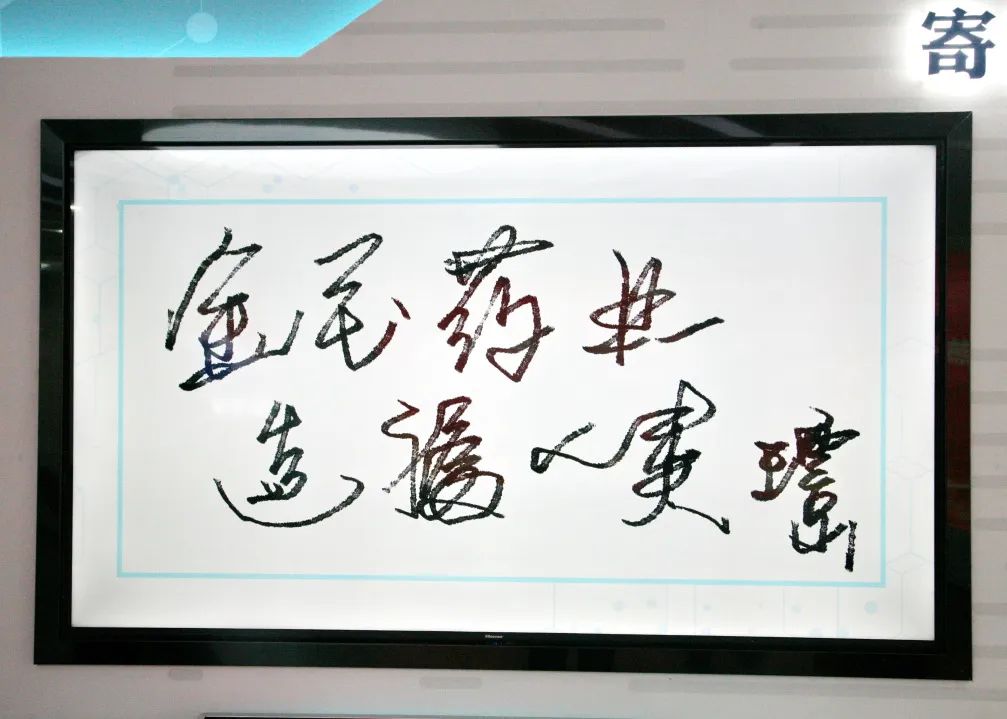 寄
金民药业
造福人类
Hisense